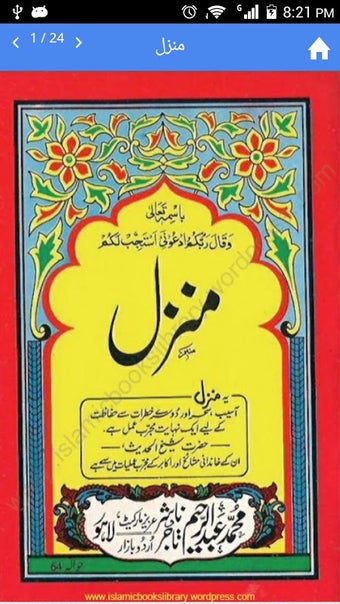 8:21 PM
1 / 24
منزل
باسمہ تعالیٰ
وَقَالَ رَبُّكُمُ ادْعُوْنِیْ اَسْتَجِبْ لَكُمْ
منزل
یہ منزل
آسیب، سحر اور دوسرے خطرات سے حفاظت
کے لیے ایک نہایت مجرب عمل ہے۔
حضرت شیخ الحدیث
ان کے خاندانی مشائخ اور اکابر کے مجرب عملیات میں سے ہے
محمد عبدالرحیم تاجر ناشر عزیز مارکیٹ اُردو بازار لاہور
www.islamicbookslibrary.wordpress.com